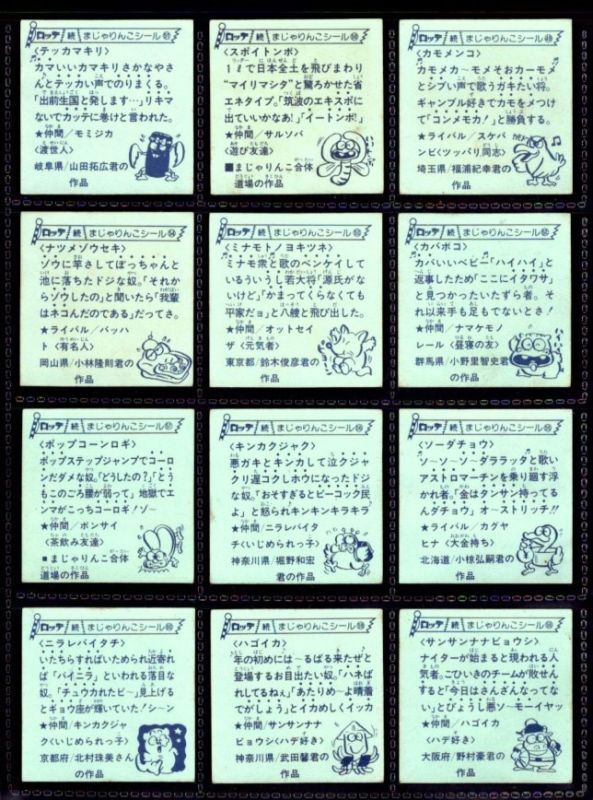 ロッテ 続 まじゃりんこシール
〈テッカマキリ〉
カマいいカマキリさかなやさ
んとテッカい声でのりまくる。
「出前生国と発します…」リキマ
ないでカッテに巻けと言われた。
★仲間/モミジカ
〈渡世人〉
岐阜県/山田拓広君の
作品
ロッテ 続 まじゃりんこシール
〈スポイトンボ〉
1ℓで日本全土を飛びまわり
"マイリマシタ"と驚ろかせた省
エネタイプ。「筑波のエキスポに
出ていいかなあ!」「イートンボ!」
★仲間/サルソバ
〈遊び友達〉
■まじゃりんこ合体
道場の作品
ロッテ 続 まじゃりんこシール
〈カモメンコ〉
カモメカ〜モメそおカーモメ
とシブい声で歌うガキたい将。
ギャンブル好きでカモをメつけ
て「コンメモカ!」と勝負する。
★ライバル/スケバ
ンビ〈ツッパリ同志〉
埼玉県/福浦紀幸君の
作品
ロッテ 続 まじゃりんこシール
〈ナツメゾウセキ〉
ゾウに竿さしてぼっちゃんと
池に落ちたドジな奴。「それか
らゾウしたの」と聞いたら「我輩
はネコんだのである」だってさ。
★ライバル/バッハ
ト〈有名人〉
岡山県/小林隆則君の
作品
ロッテ 続 まじゃりんこシール
〈ミナモトノヨキツネ〉
ミナモ衆と歌のベンケイして
いるういうし若大将「源氏がな
いけど」「かまってくらなくても
平家だョ」と八艘と飛び出した。
★仲間/オットセイ
ザ〈元気者〉
東京都/鈴木俊彦君の
作品
ロッテ 続 まじゃりんこシール
〈カバボコ〉
カバいいベビー「ハイハイ」と
返事したため「ここにイタワサ」
と見つかったいたずら者。そ
れ以来手も足もでないとさ!
★仲間/ナマケモノ
レール〈昼寝の友〉
群馬県/小野里智史君
の作品
ロッテ 続 まじゃりんこシール
〈ポップコーンロギ〉
ポップステップジャンプでコーロ
ンだダメな奴。「どうしたの?」「とう
もこのごろ腰が弱って」地獄でエ
ンマがこっちコーロギ!ゾ〜
★仲間/ボンサイ
〈茶飲み友達〉
■まじゃりんこ合体
道場の作品
ロッテ 続 まじゃりんこシール
〈キンカクジャク〉
悪ガキとキンカして泣クジャ
クリ遅コクしホウになったドジ
な奴。「おそすぎるとピーコック民
よ」と怒られキンキンキラキラ
★仲間/ニラレバイタ
チ〈いじめられっ子〉
神奈川県/堀野和宏
君の作品
ロッテ 続 まじゃりんこシール
〈ソーダチョウ〉
ソ〜ソ〜ソーダララッタと歌い
アストロマーチンを乗り廻す浮
かれ者。「金はタンサン持ってる
んダチョウ」オ〜ストリッチ!!
★ライバル/カグヤ
ヒナ〈大金持ち〉
北海道/小椋弘嗣君の
作品
ロッテ 続 まじゃりんこシール
〈ニラレバイタチ〉
いたちらすればいためられ近寄れ
ば「バイニラ」といわれる落目な
奴。「チュウカれたビ〜」見上げる
とギョウ座が輝いていた!シ〜ン
★仲間/キンカクジャ
ク〈いじめられっ子〉
京都府/北村珠美さん
の作品
ロッテ 続 まじゃりんこシール
〈ハゴイカ〉
「年の初めには〜るばる来たぜと
登場するお目出たい奴。「ハネば
れしてるねぇ」「あたりめ〜よ晴着
てがしょう」とイカめしくイッカ
★仲間/サンサンナナ
ビョウシ〈ハデ好き〉
神奈川県/武田馨君の
作品
ロッテ 続 まじゃりんこシール
〈サンサンナナビョウシ〉
ナイターが始まると現われる人
気者。ごひいきのチームが敗せん
すると「今日はさんざんなってな
い」とびょうし悪ソ〜モーイヤッ
★仲間/ハゴイカ
〈ハデ好き〉
大阪府/野村豪君の
作品